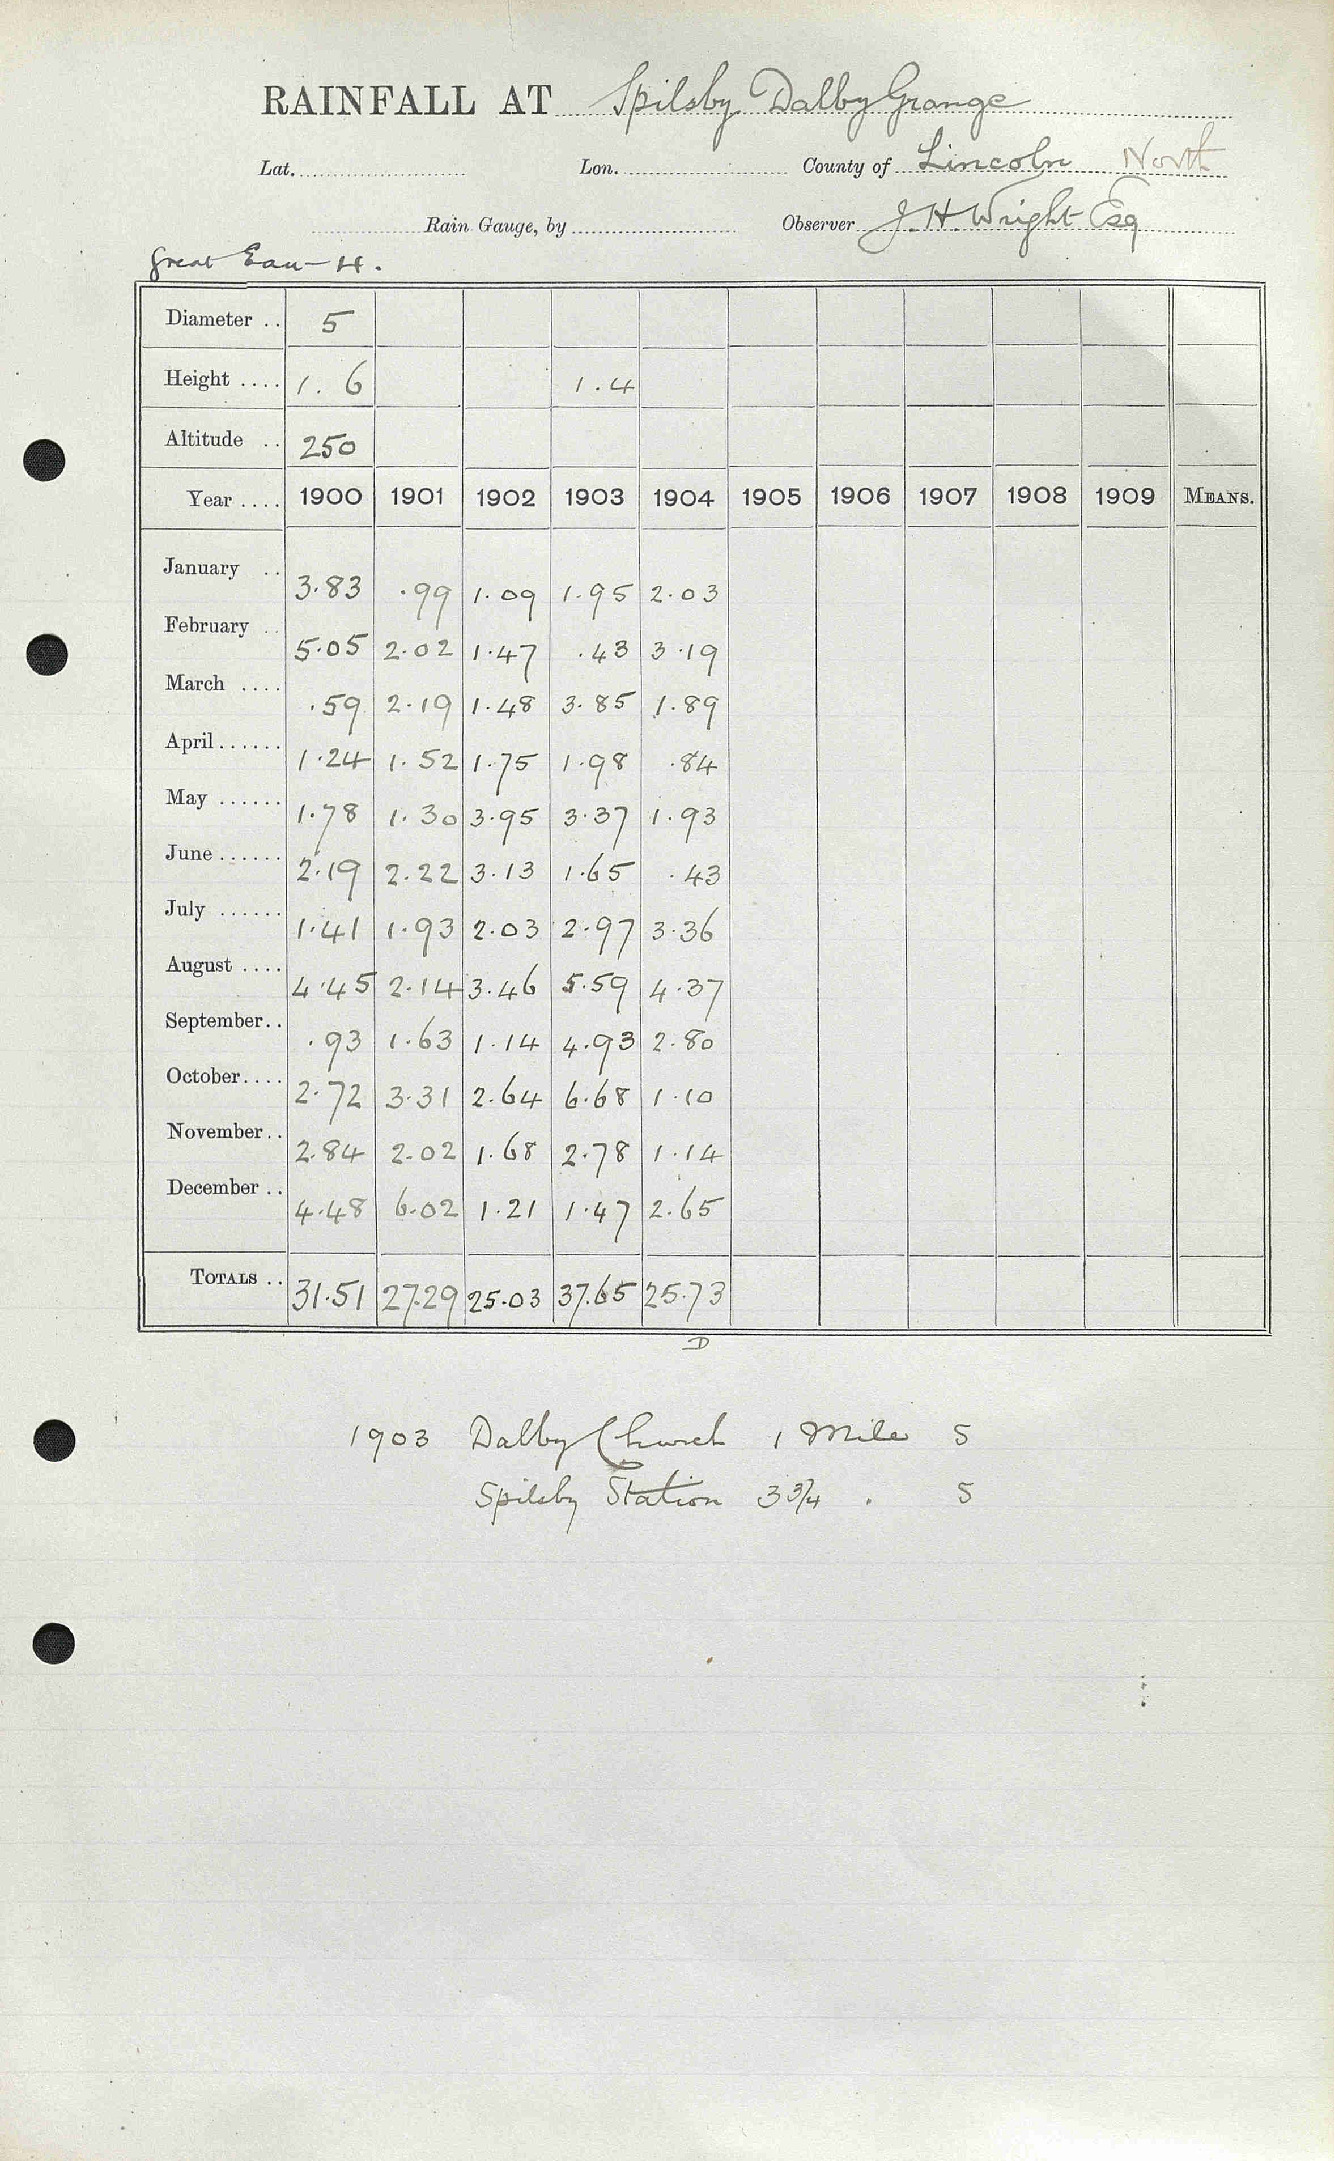 RAINFALL AT Spilsby Dalby Grange
Lat. Lon. County of Lincoln North
Rain Gauge, by Observer J. H. Wright Esq
Great Eau - H.
Diameter .. 5
Height .... 1. 6 1.4
Altitude .. 250
Year .... 1900 1901 1902 1903 1904 1905 1906 1907 1908 1909 MEANS.
January .. 3.83 .99 1.09 1.95 2.03
February .. 5.05 2.02 1.47 .43 3.19
March .... .59 2.19 1.48 3.85 1.89
April ...... 1.24 1.52 1.75 1.98 .84
May ...... 1.78 1.30 3.95 3.37 1.93
June ...... 2.19 2.22 3.13 1.65 .43
July ...... 1.41 1.93 2.03 2.97 3.36
August .... 4.45 2.14 3.46 5.59 4.37
September.. .93 1.63 1.14 4.93 2.80
October.... 2.72 3.31 2.64 6.68 1.10
November.. 2.84 2.02 1.68 2.78 1.14
December .. 4.48 6.02 1.21 1.47 2.65
TOTALS .. 31.51 27.29 25.03 37.65 25.73
D
1903 Dalby Church 1 Mile S
Spilsby Station 3 3/4 . S